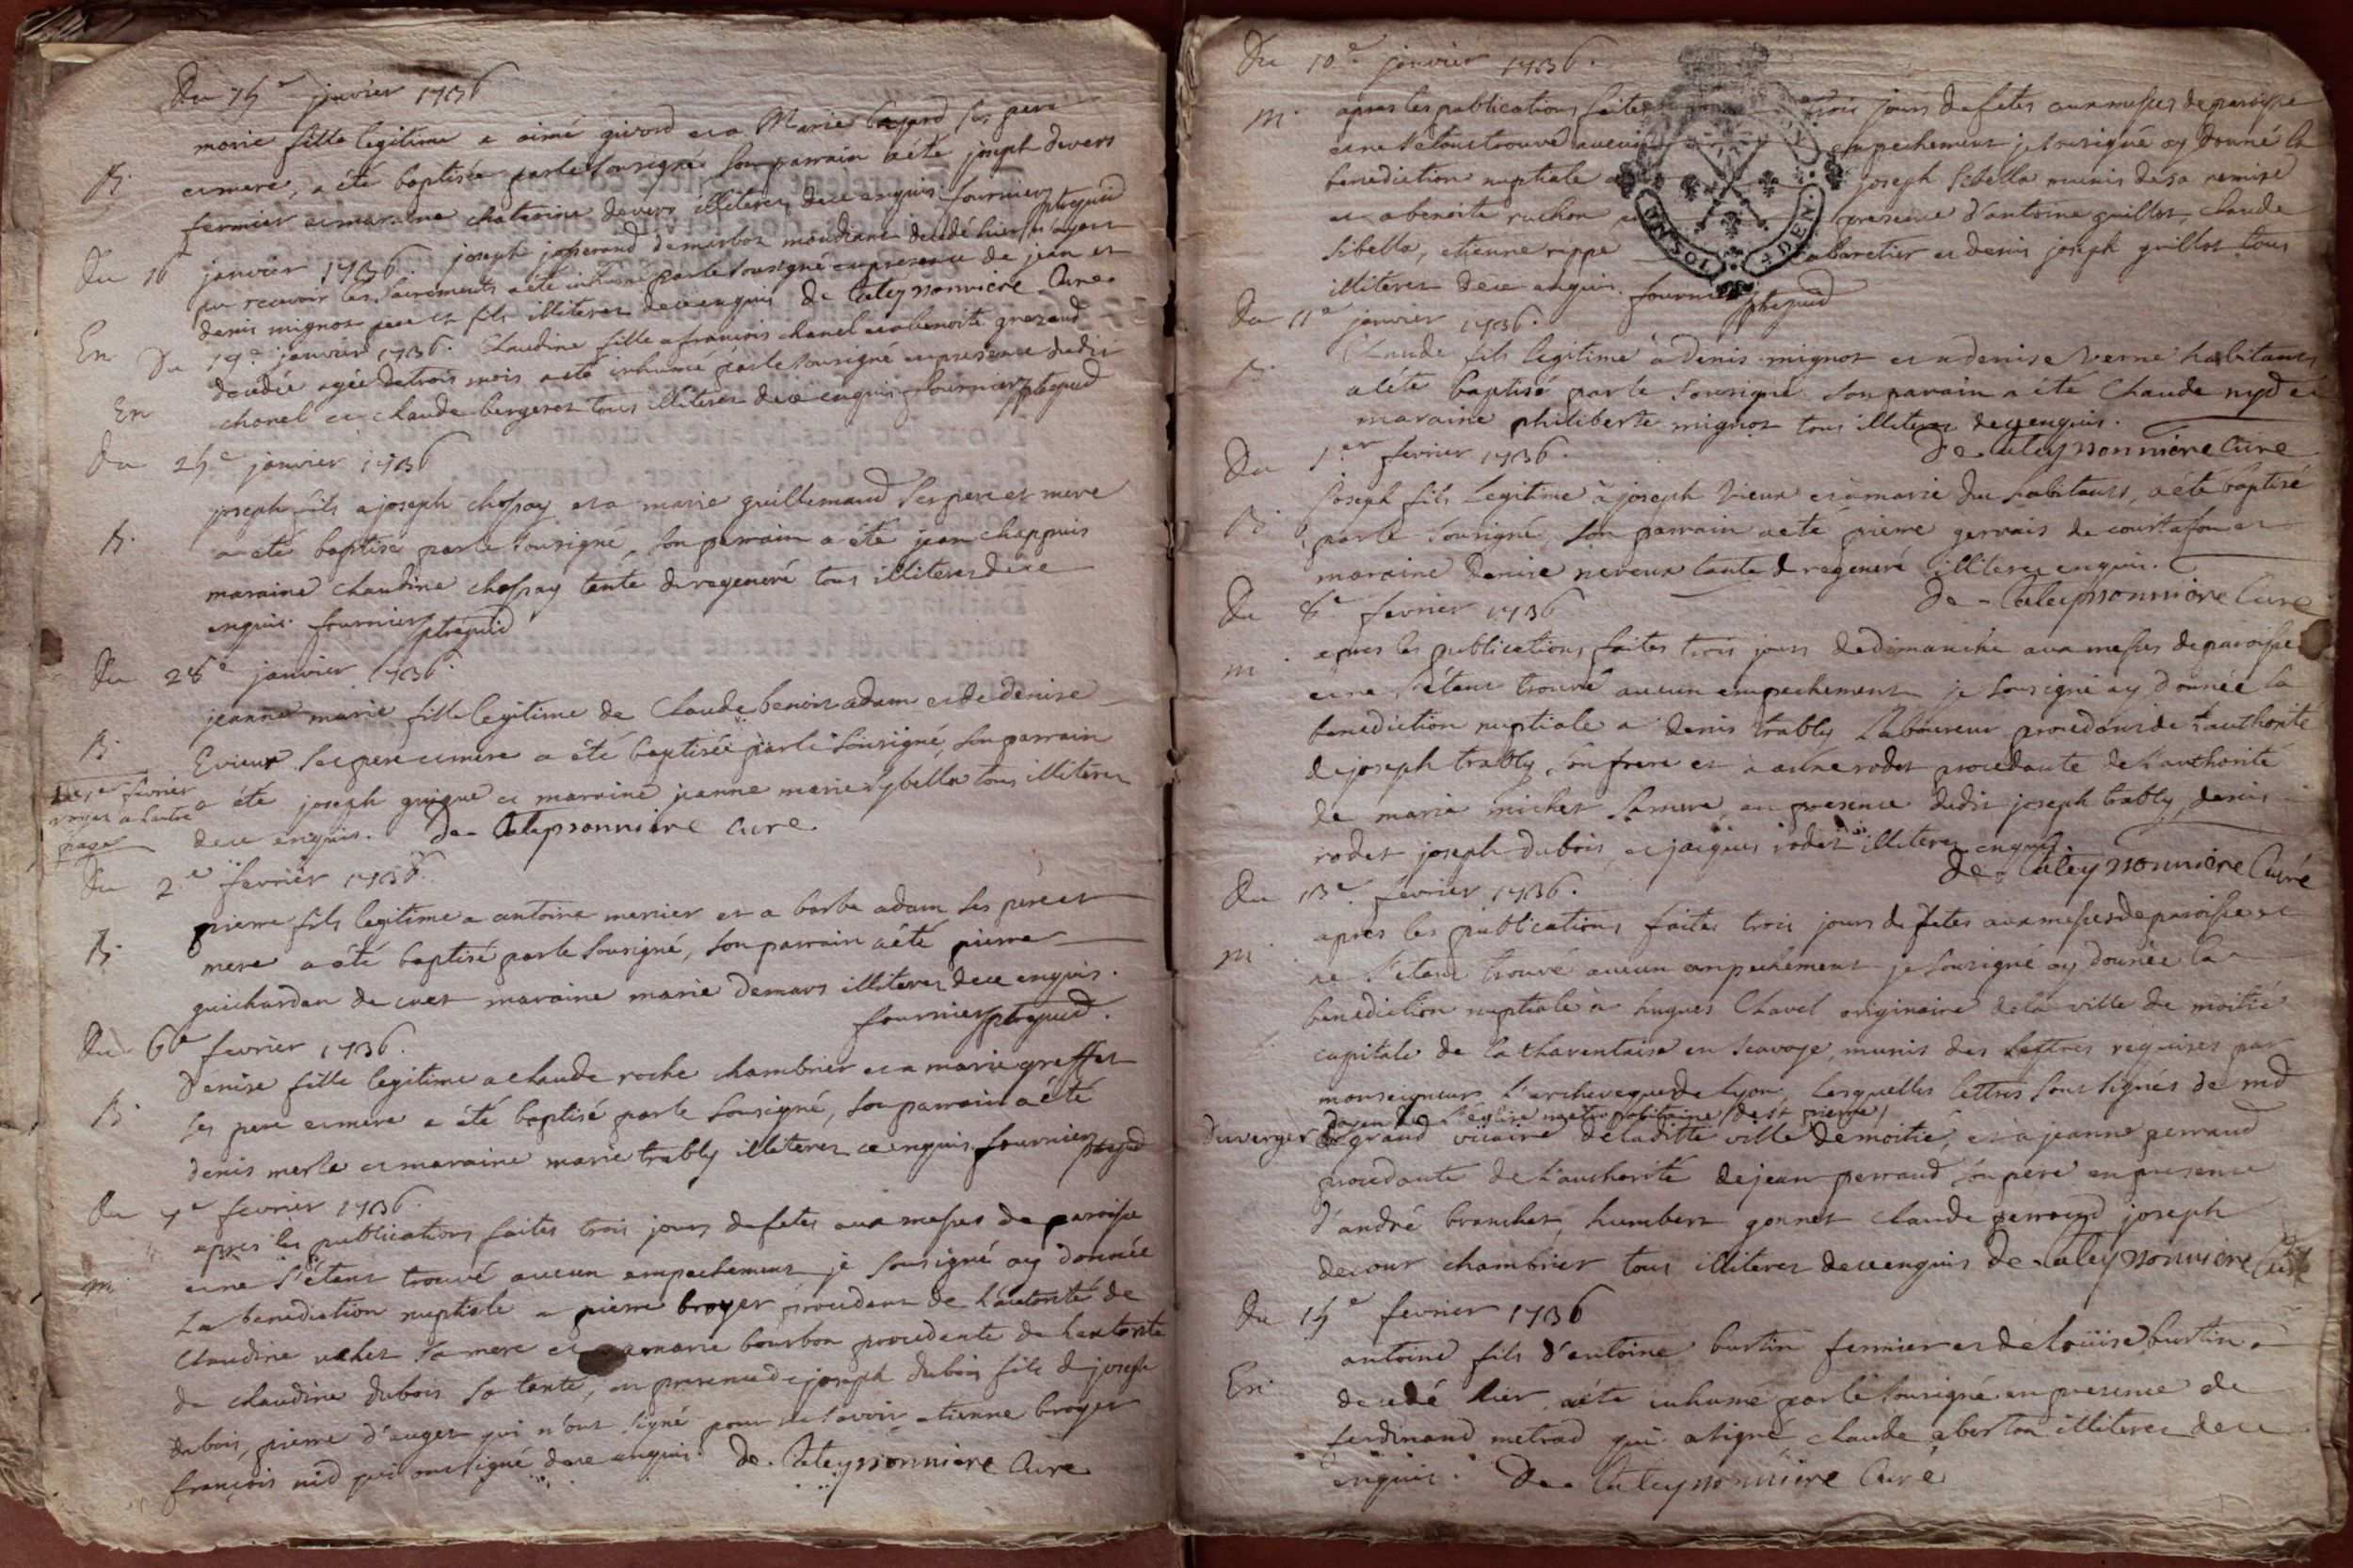 Du 15e janvier 1736
marie fille legitime a aimé givord et a Marie bayard ses pere
B. et mere, a été baptisée par le sousigné son parrain a été joseph devers
fermier et maraine chaterine devers illiteres de ce enquis fournier ptre quid
Du 16 janvier 1736 joseph josserand de marboz mandiant decedé hier n'ayant
pu recevoir les sacrements a été inhumé par le sousigné en presence de jean et
En denis mignot pere et fils illiteres de ce enquis de Lateyssonniere Curé
Du 19e janvier 1736. Claudine fille a françois chanel et a benoite
decedée agée de trois mois a été inhumé par le sousigné en presence dudit
En chanel et claude bergeret tous illiteres de ce enquis fournier ptre quid
Du 25e janvier 1736
joseph fils a joseph chossay et a marie guillemaud ses pere et mere
B. a été baptisé par le sousigné, son parrain a été jean chappuis
maraine claudine chossay tante du regeneré tous illiteres de ce
enquis. fournier ptre quid
Du 28e janvier 1736.
jeanne marie fille legitime de Claude benoit adam et de denise
B. Evieux ses pere et mere a été baptisée par le sousigné, son parrain
Du 1er fevrier
voyez a l'autre
page
a été joseph guigue et marraine jeanne marie sybella tous illiteres
de ce enquis. De Lateyssonniere Curé
Du 2e fevrier 1736.
pierre fils legitime a antoine mercier et a barbe adam ses pere et
B. mere a été baptisé par le sousigné, son parrain a été pierre
guichardan de cuet maraine marie demars illiteres de ce enquis.
fournier ptre quid.
Du 6e fevrier 1736.
Denise fille legitime a claude roche chambrier et a marie greffet
B. ses pere et mere a été baptisé par le sousigné, son parrain a été
denis merle et maraine marie trably illiteres ce enquis fournier ptre quid
Du 7e fevrier 1736.
apres les publications faites trois jours de fetes aux messes de paroisse
m. et ne s'étant trouvé aucun empechement je sousigné ay donnée
La benediction nuptiale a pierre broyer procedant de l'autorité de
Claudine sa mere et a marie bourbon procedante de l'autorité
de claudine dubois sa tante, en presence de joseph dubois fils de joseph
dubois, pierre d'auger qui n'ont signé pour ne savoir etienne broyer
françois nid qui ont signé de ce enquis. De Lateyssonniere Curé
Du 10e janvier 1736.
m. apres les publications faites trois jours de fetes aux messes de paroisse
et ne s'etant trouvé aucun empechement je sousigné ay donné la
benediction nuptiale a joseph sibella munis de sa remise
et a benoite ruchon en presence d'antoine guillot, claude
sibella, etienne rippe cabaretier et denis joseph guillot tous
illiteres de ce enquis. fournier ptre quid
BRESSOL . D.DEN.
Du 11e janvier 1736.
B. Claude fils legitime a Denis mignot et a denise verne habitants
a été baptisé par le sousigné son parain a été Claude nyd et
maraine philiberte mignot tous illiteres de ce enquis.
De Lateyssonniere Curé
Du 1er fevrier 1736.
Joseph fils legitime à joseph vieux et à marie duc habitants, a été baptisé
B. par le sousigné son parrain a été pierre gervais de courtafon et
maraine denise neveux tante du regeneré illiteres enquis.
De Lateyssonniere Curé
Du 6e fevrier 1736
m. apres les publications faites trois jours de dimanche aux messes de paroisse
et ne s'étant trouvé aucun empechement je sousigné ay donnée la
benediction nuptiale a denis trably Laboureur procedant de l'authorité
de joseph trably, son frere et a rodet procedante de l'authorité
de marie michet sa mere, en presence dudit joseph trably, denis
rodet joseph dubois, et jacques rodet illiteres enquis
De Lateyssonniere Curé
Du 13e. fevrier 1736.
apres les publications faites trois jours de fetes aux messes de paroisse et
m. ne s'étant trouvé aucun empechement je sousigné ay donnée la
benediction nuptiale à hugues Chavel originaire de la ville de moitié
capitale de la tharentaise en scavoye, munis des Lettres requises par
monseigneur l'archeveque de Lyon, Lesquelles lettres sont signés de md
doyen de l'église metropolitaine (de st pierre)
duverger et grand vicaire de laditte ville de moitié, et a jeanne perraud
procedante de l'authorité de jean perraud son pere en presence
d'andré branchet, humbert gonnet claude perraud joseph
decour chambrier tous illiteres de ce enquis de Lateyssonniere Curé
Du 15e fevrier 1736
antoine fils d'antoine burtin fermier et de Louise burtin
En. decedé hier, a été inhumé par le sousigné en presence de
ferdinand metrad qui a signé, claude illiteres de ce
enquis. De Lateyssonniere Curé